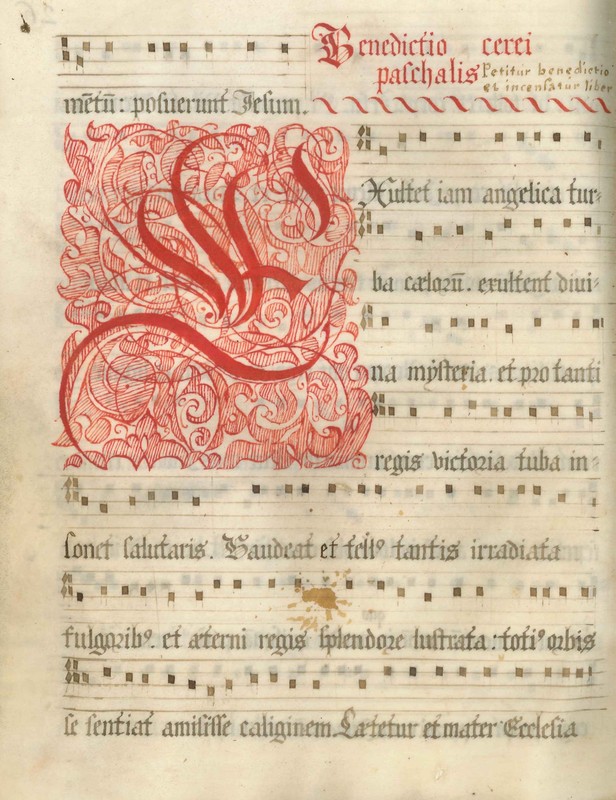 Benedictio cerei
paschalis Petitur benedictio
et incensatur liber
mẽtũ: posuerunt Jesum.
EXultet iam angelica tur-
ba cælorũ. exultent divi-
na mysteria. et pro tanti
regis victoria tuba in-
sonet salutaris. Gaudeat et tellꝰ tantis irradiata
fulgoribꝰ. et æterni regis splendore lustrata: totiꝰ orbis
se sentiat amisisse caliginem. Lætetur et mater Ecclesia